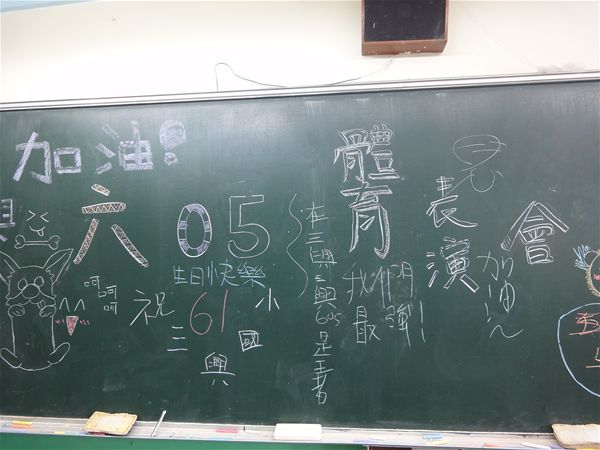 加油!
六05
生日快樂
呵呵呵
祝三興國小
61
體育
表演會
在三興
605是王者
我們最強!
加油ㄣ